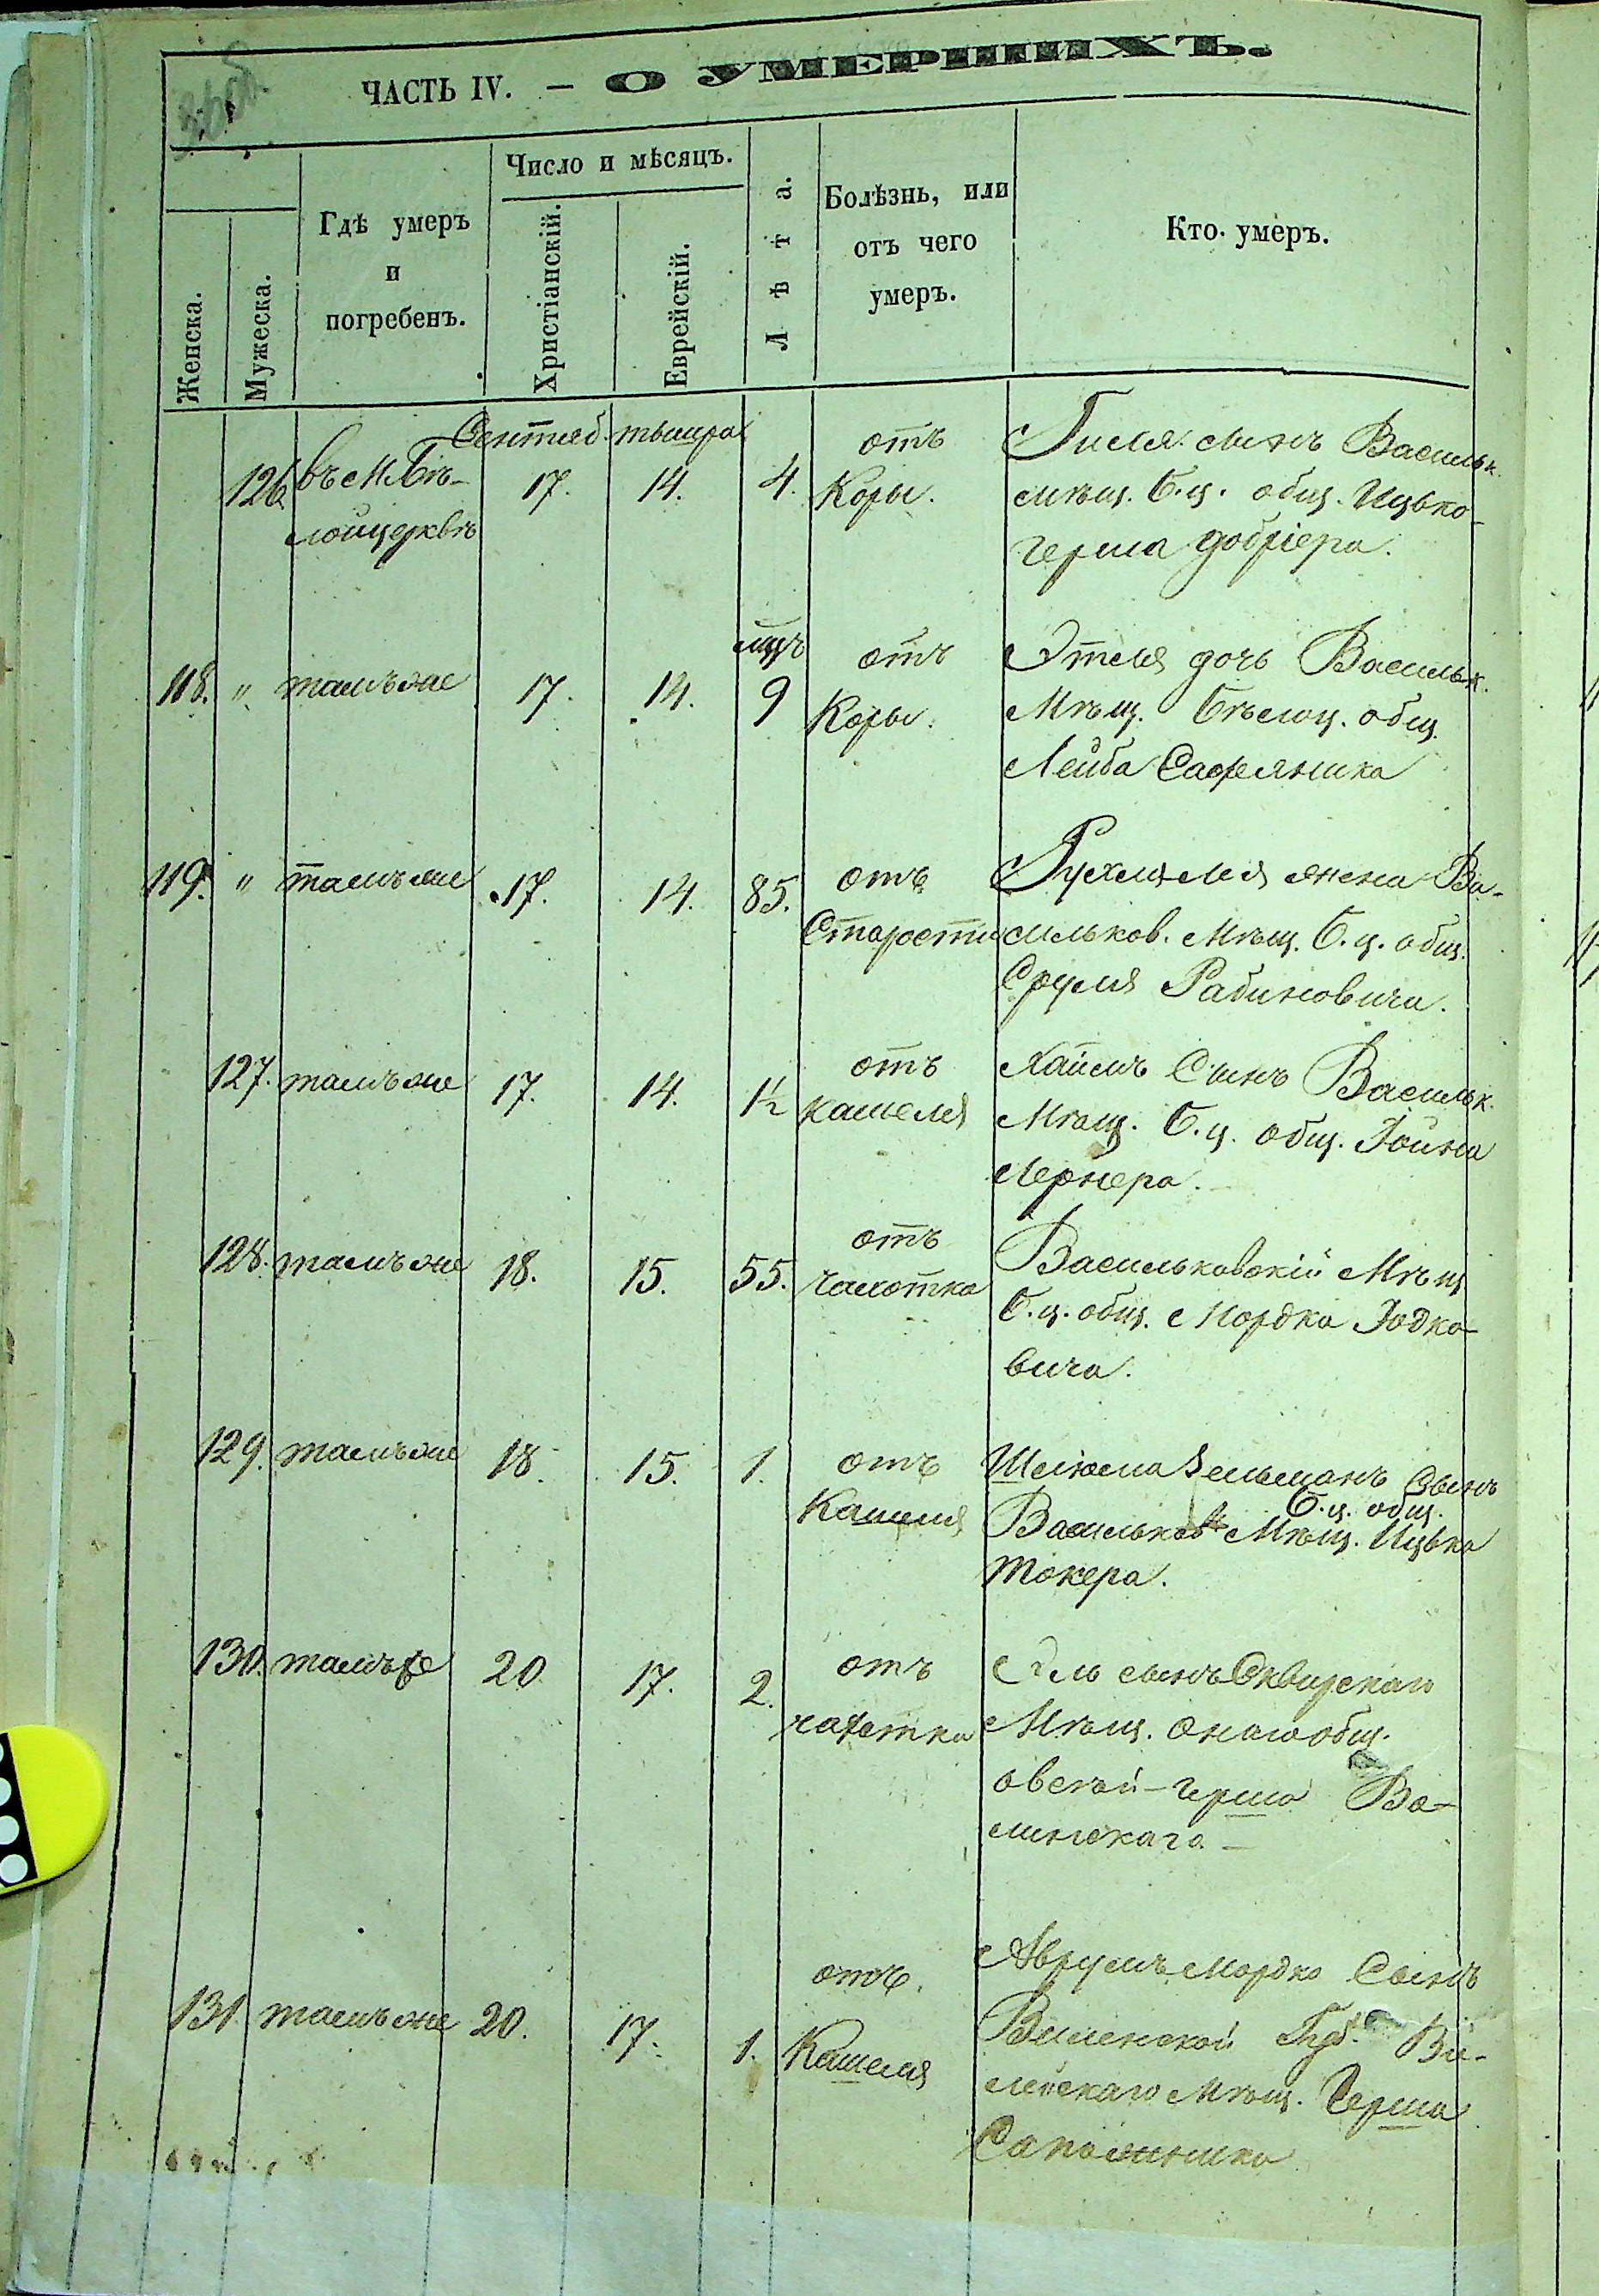 ЧАСТЬ IV. — О УМЕРШИХЪ.
Женска.
Мужеска.
Гдѣ умеръ
и
погребенъ.
Число и мѣсяцъ.
Христіанскій.
Еврейскій.
Лѣта.
Болѣзнь, или
отъ чего
умеръ.
Кто умеръ.
Сентяб. тышра
126 въ М. Бѣ-
лойцерквѣ
17. 14. 4.
отъ
Коры.
сынъ Васильк.
мѣщ. Б.ц. общ. Ицько-
герша
мцъ
118. " тамъ же 17. 14. 9
отъ
Коры.
Этля дочь Васильк.
Мѣщ. Бѣлоц. общ.
Лейба Сафяника
119. " тамъ же 17. 14. 85.
отъ
Старости
Рухля жена Ва-
сильков. Мѣщ. Б.ц. общ.
Сруля Рабиновича.
127. тамъ же 17. 14. 1½
отъ
кашеля
Хаимъ Сынъ Васильк.
Мѣщ. Б.ц. общ. Іойна
Лернера.
128. тамъ же 18. 15. 55.
отъ
чахотка
Васильковскій Мѣщ
Б.ц. общ. Мордко Іодко-
вича.
129. тамъ же 18. 15. 1.
отъ
Кашеля
Шліома Зельманъ Сынъ
Б.ц. общ.
Васильков Мѣщ. Ицька
Токера.
130. тамъ же 20 17. 2.
отъ
чахотки
сынъ Сквирскаго
Мѣщ. онаго общ.
овсѣй-герша Во-
линскаго —
131. тамъ же 20. 17. 1.
отъ
Кашеля
Аврумъ Мордко Сынъ
Виленской Губ. Ви-
лейскаго Мѣщ. Герша
Сапожника